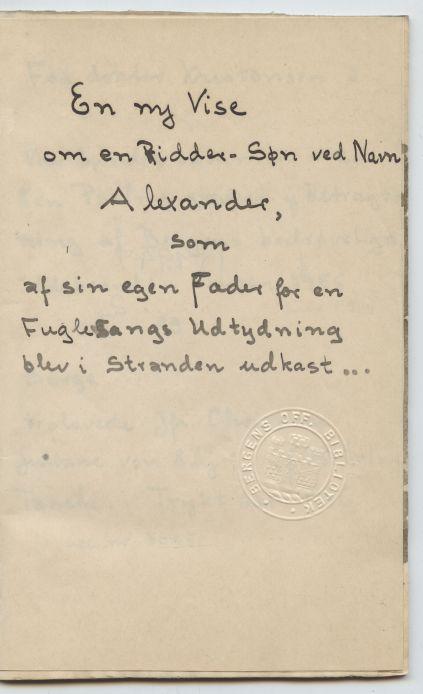 En ny Vise
om en Ridder-Søn ved Navn
Alexander,
som
af sin egen Fader for en
FugleSangs Udtydning
blev i Stranden udkast...
BERGENS OFF. BIBLIOTEK